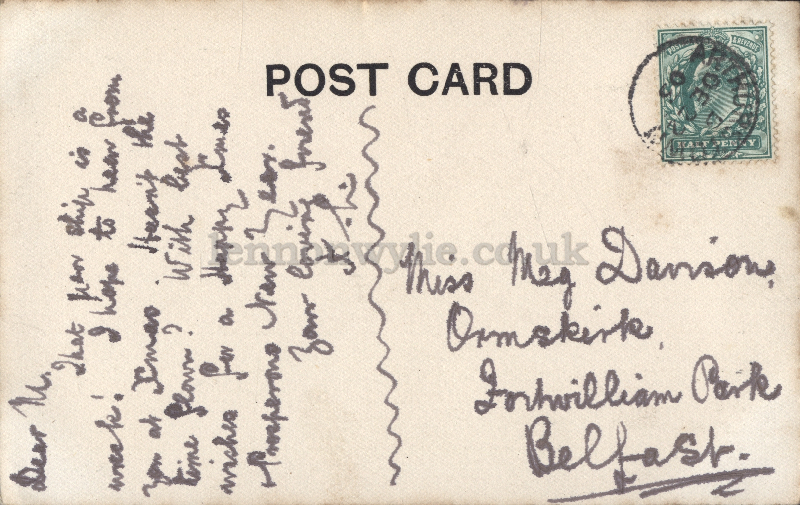 POST CARD
Dear M.
That pen ship is a
wreck! I hope to hear from
you at Xmas. Hasn't the
time flown? With best
wishes for a Happy Xmas
& Prosperous New Year.
Your loving friend
Miss Meg Davison,
Ormskirk,
Fortwilliam Park
Belfast.
POSTAGE & REVENUE
HALF PENNY
lennonwylie.co.uk